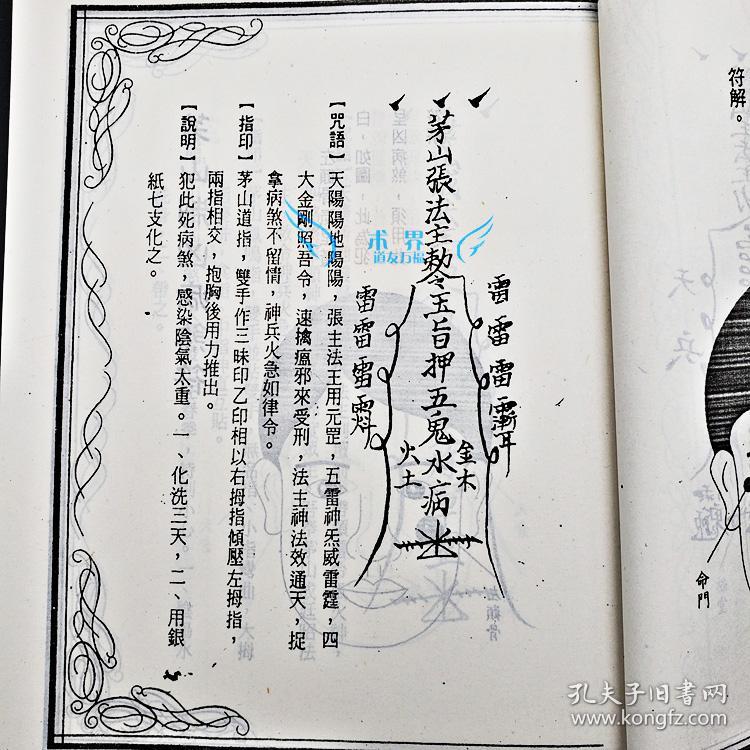 符解。
命門
茅山張法主勅令玉旨押五鬼水病
金木
火土
雷雷雷
雷雷雷
【咒語】天陽陽地陽陽，張主法王用元罡，五雷神炁威雷霆，四
大金剛照吾令，速擒瘟邪來受刑，法主神法效通天，捉
拿病煞不留情，神兵火急如律令。
【指印】茅山道指，雙手作三昧印乙印相以右拇指傾壓左拇指，
兩指相交，抱胸後用力推出。
【說明】犯此死病煞，感染陰氣太重。一、化洗三天，二、用銀
紙七支化之。
术界
道友万福
孔夫子旧书网
www.kongfz.com